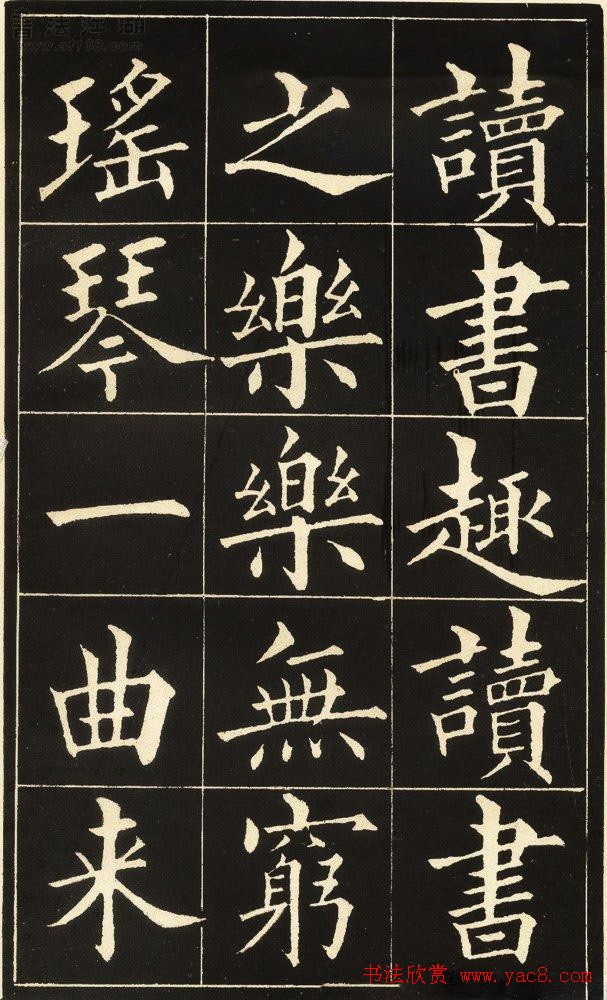 讀書趣讀書
之樂樂無窮
瑤琴一曲来
书法欣赏 www.yac8.com
书法江湖
www.sf108.com